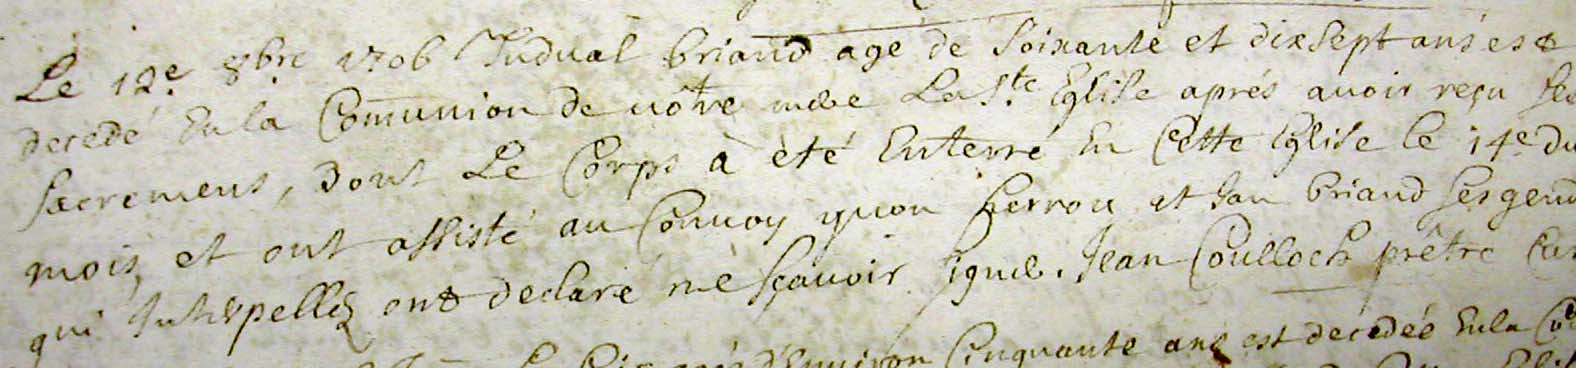 Le 12e. 8bre 1706 Tudual briand agé de soixante et dixsept ans est
decedé En la Communion de nôtre mere La Ste Eglise aprés avoir reçu ses
sacremens, dont Le Corps à été Enterré En Cette Eglise le 14e. du
mois, et ont assisté au Convoy yuon herrou et Jan briand ses gend
qui Interpellez ont declaré ne sçavoir signer. Jean Coulloch prêtre Cur
d'Environ Cinquante ans est decedée En la Co